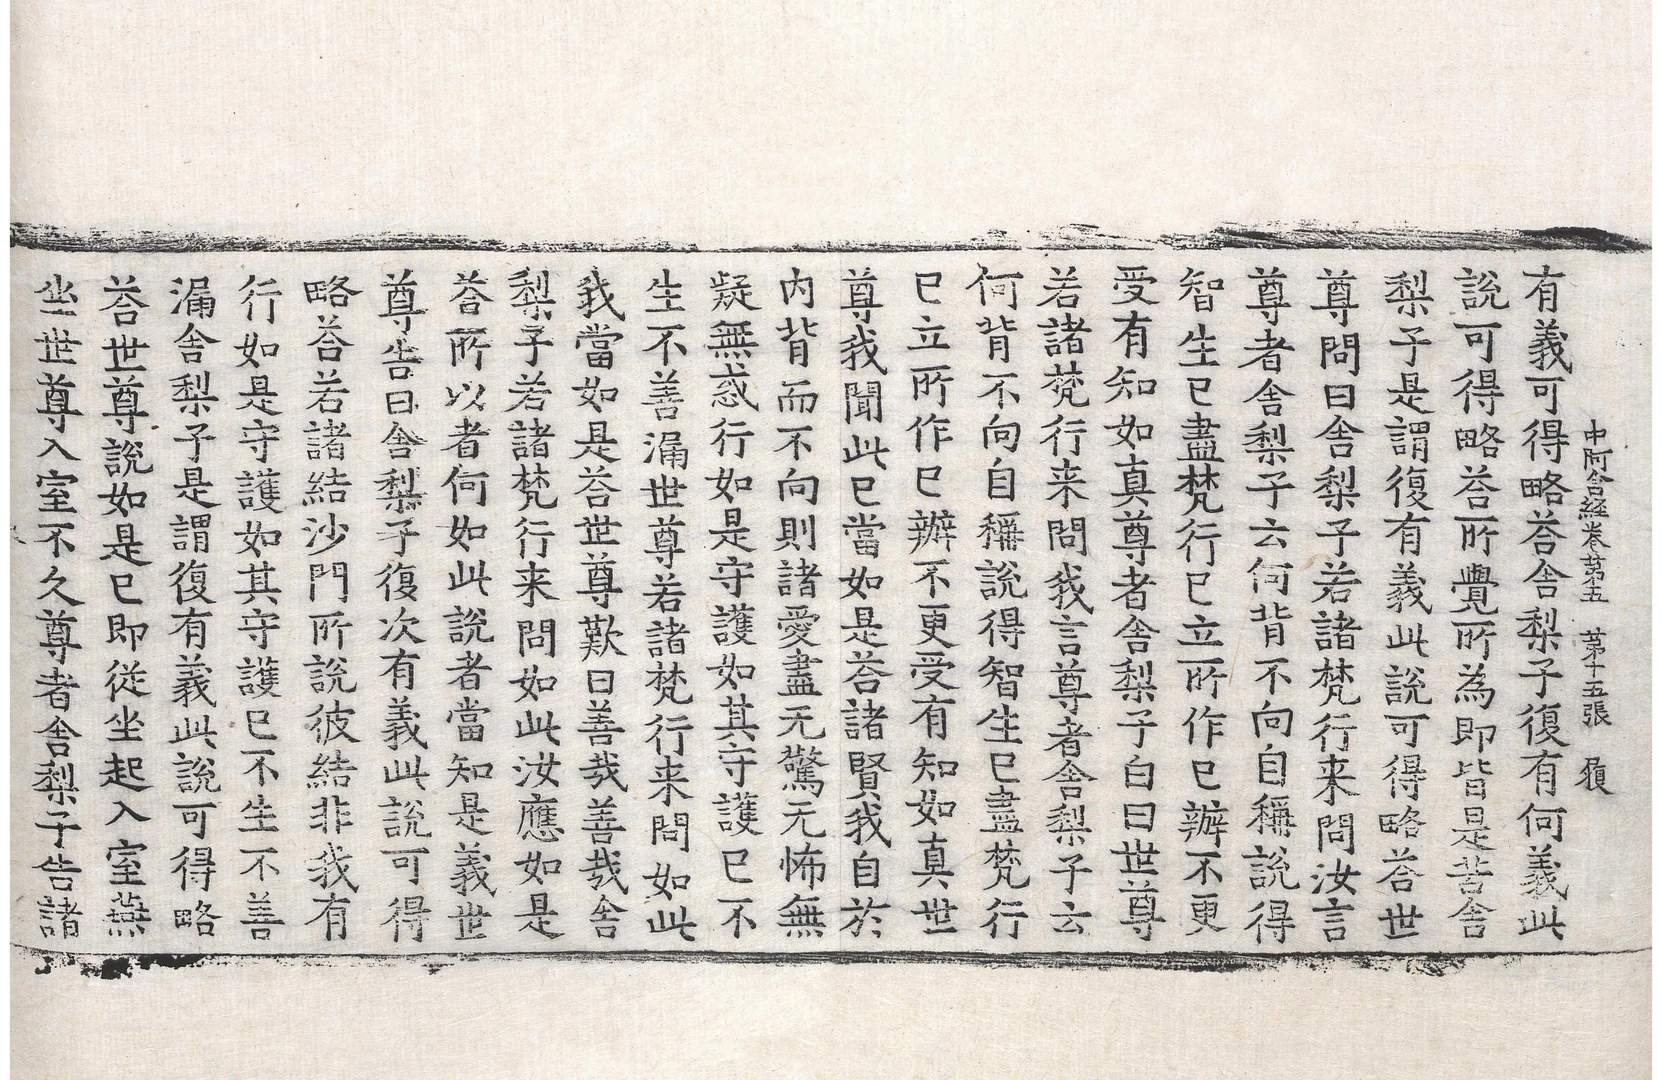 中阿含經卷第五　第十五張　履
有義可得略荅舎梨子復有何義此
說可得略荅所覺所為即皆是苦舎
梨子是謂復有義此說可得略荅世
尊問曰舎梨子若諸梵行来問汝言
尊者舎梨子云何背不向自稱說得
智生已盡梵行已立所作已辦不更
受有知如真尊者舎梨子白曰世尊
若諸梵行来問我言尊者舎梨子云
何背不向自稱說得智生已盡梵行
已立所作已辦不更受有知如真世
尊我聞此已當如是荅諸賢我自於
内背而不向則諸愛盡无驚无怖無
疑無惑行如是守護如其守護已不
生不善漏世尊若諸梵行来問如此
我當如是荅世尊歎曰善㢤善㢤舎
梨子若諸梵行来問如此汝應如是
荅所以者何如此說者當知是義世
尊告曰舎梨子復次有義此說可得
略荅若諸結沙門所說彼結非我有
行如是守護如其守護已不生不善
漏舎梨子是謂復有義此說可得略
荅世尊說如是已即從坐起入室燕
坐世尊入室不久尊者舎梨子告諸